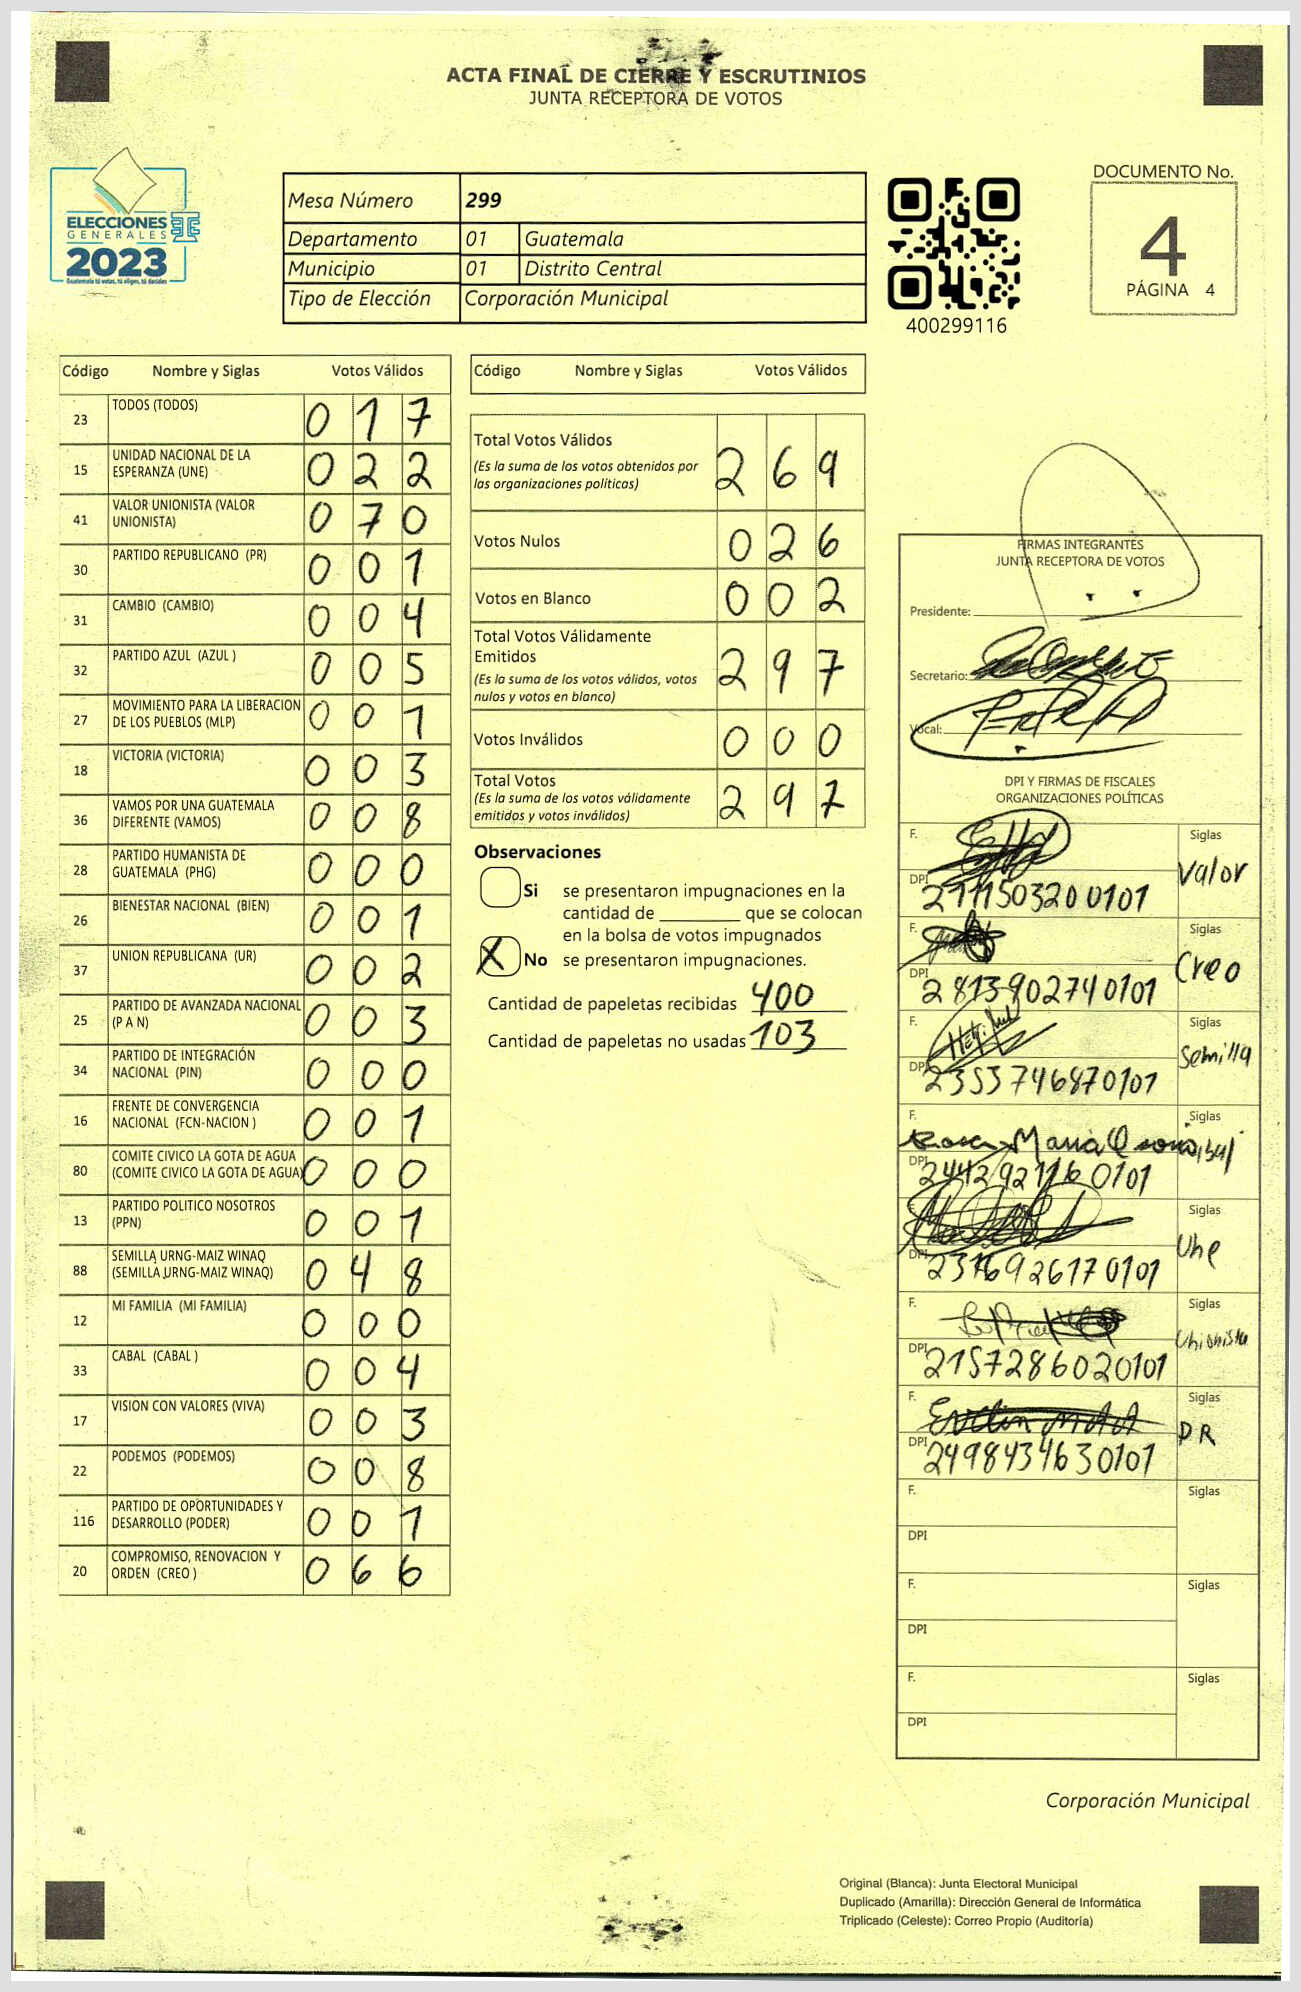 ACTA FINAL DE CIERRE Y ESCRUTINIOS
JUNTA RECEPTORA DE VOTOS
ELECCIONES
GENERALES
2023
Guatemala tú votas, tú eliges, tú decides
Mesa Número 299
Departamento 01 Guatemala
Municipio 01 Distrito Central
Tipo de Elección Corporación Municipal
400299116
DOCUMENTO No.
4
PÁGINA 4
Código Nombre y Siglas Votos Válidos
23 TODOS (TODOS) 0 1 7
15 UNIDAD NACIONAL DE LA ESPERANZA (UNE) 0 2 2
41 VALOR UNIONISTA (VALOR UNIONISTA) 0 7 0
30 PARTIDO REPUBLICANO (PR) 0 0 1
31 CAMBIO (CAMBIO) 0 0 4
32 PARTIDO AZUL (AZUL ) 0 0 5
27 MOVIMIENTO PARA LA LIBERACION DE LOS PUEBLOS (MLP) 0 0 1
18 VICTORIA (VICTORIA) 0 0 3
36 VAMOS POR UNA GUATEMALA DIFERENTE (VAMOS) 0 0 8
28 PARTIDO HUMANISTA DE GUATEMALA (PHG) 0 0 0
26 BIENESTAR NACIONAL (BIEN) 0 0 1
37 UNION REPUBLICANA (UR) 0 0 2
25 PARTIDO DE AVANZADA NACIONAL (P A N) 0 0 3
34 PARTIDO DE INTEGRACIÓN NACIONAL (PIN) 0 0 0
16 FRENTE DE CONVERGENCIA NACIONAL (FCN-NACION ) 0 0 1
80 COMITE CIVICO LA GOTA DE AGUA (COMITE CIVICO LA GOTA DE AGUA) 0 0 0
13 PARTIDO POLITICO NOSOTROS (PPN) 0 0 1
88 SEMILLA URNG-MAIZ WINAQ (SEMILLA URNG-MAIZ WINAQ) 0 4 8
12 MI FAMILIA (MI FAMILIA) 0 0 0
33 CABAL (CABAL ) 0 0 4
17 VISION CON VALORES (VIVA) 0 0 3
22 PODEMOS (PODEMOS) 0 0 8
116 PARTIDO DE OPORTUNIDADES Y DESARROLLO (PODER) 0 0 1
20 COMPROMISO, RENOVACION Y ORDEN (CREO ) 0 6 6
Código Nombre y Siglas Votos Válidos
Total Votos Válidos 2 6 9
(Es la suma de los votos obtenidos por
las organizaciones políticas)
Votos Nulos 0 2 6
Votos en Blanco 0 0 2
Total Votos Válidamente
Emitidos 2 9 7
(Es la suma de los votos válidos, votos
nulos y votos en blanco)
Votos Inválidos 0 0 0
Total Votos 2 9 7
(Es la suma de los votos válidamente
emitidos y votos inválidos)
Observaciones
Si se presentaron impugnaciones en la
cantidad de ________ que se colocan
en la bolsa de votos impugnados
X No se presentaron impugnaciones.
Cantidad de papeletas recibidas 400
Cantidad de papeletas no usadas 103
FIRMAS INTEGRANTES
JUNTA RECEPTORA DE VOTOS
Presidente:
Secretario:
Vocal:
DPI Y FIRMAS DE FISCALES
ORGANIZACIONES POLÍTICAS
F. Siglas
Valor
DPI
F. Siglas
Creo
DPI 2813902740101
F. Siglas
Semilla
DPI 2353746870101
F. Siglas
Maria
DPI
F. Siglas
Une
DPI 2316926170101
F. Siglas
Unionista
DPI 2157286020101
F. Siglas
PR
DPI 2498434630101
F. Siglas
DPI
F. Siglas
DPI
F. Siglas
DPI
Corporación Municipal
Original (Blanca): Junta Electoral Municipal
Duplicado (Amarilla): Dirección General de Informática
Triplicado (Celeste): Correo Propio (Auditoría)